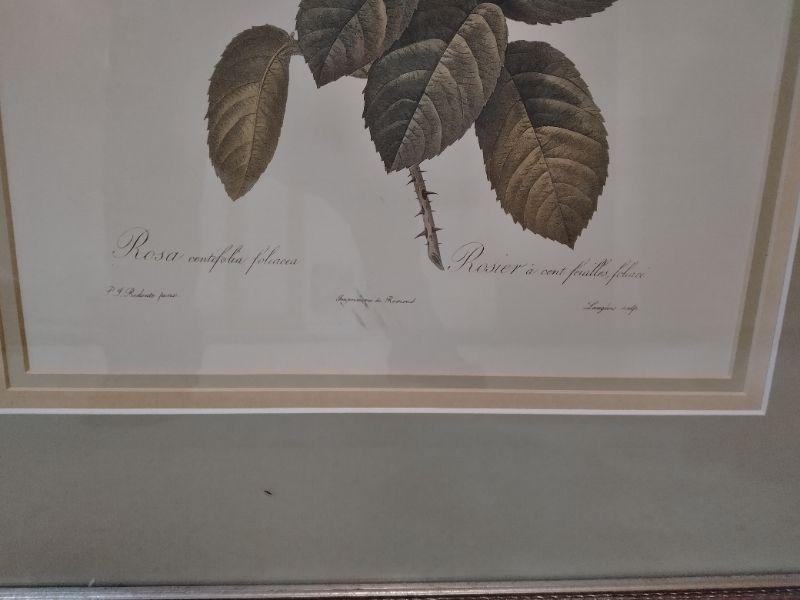 Rosa centifolia foliacea
Rosier à cent feuilles, foliacé
P. J. Redouté pinx.
Imprimerie de Remond
Langlois sculp.